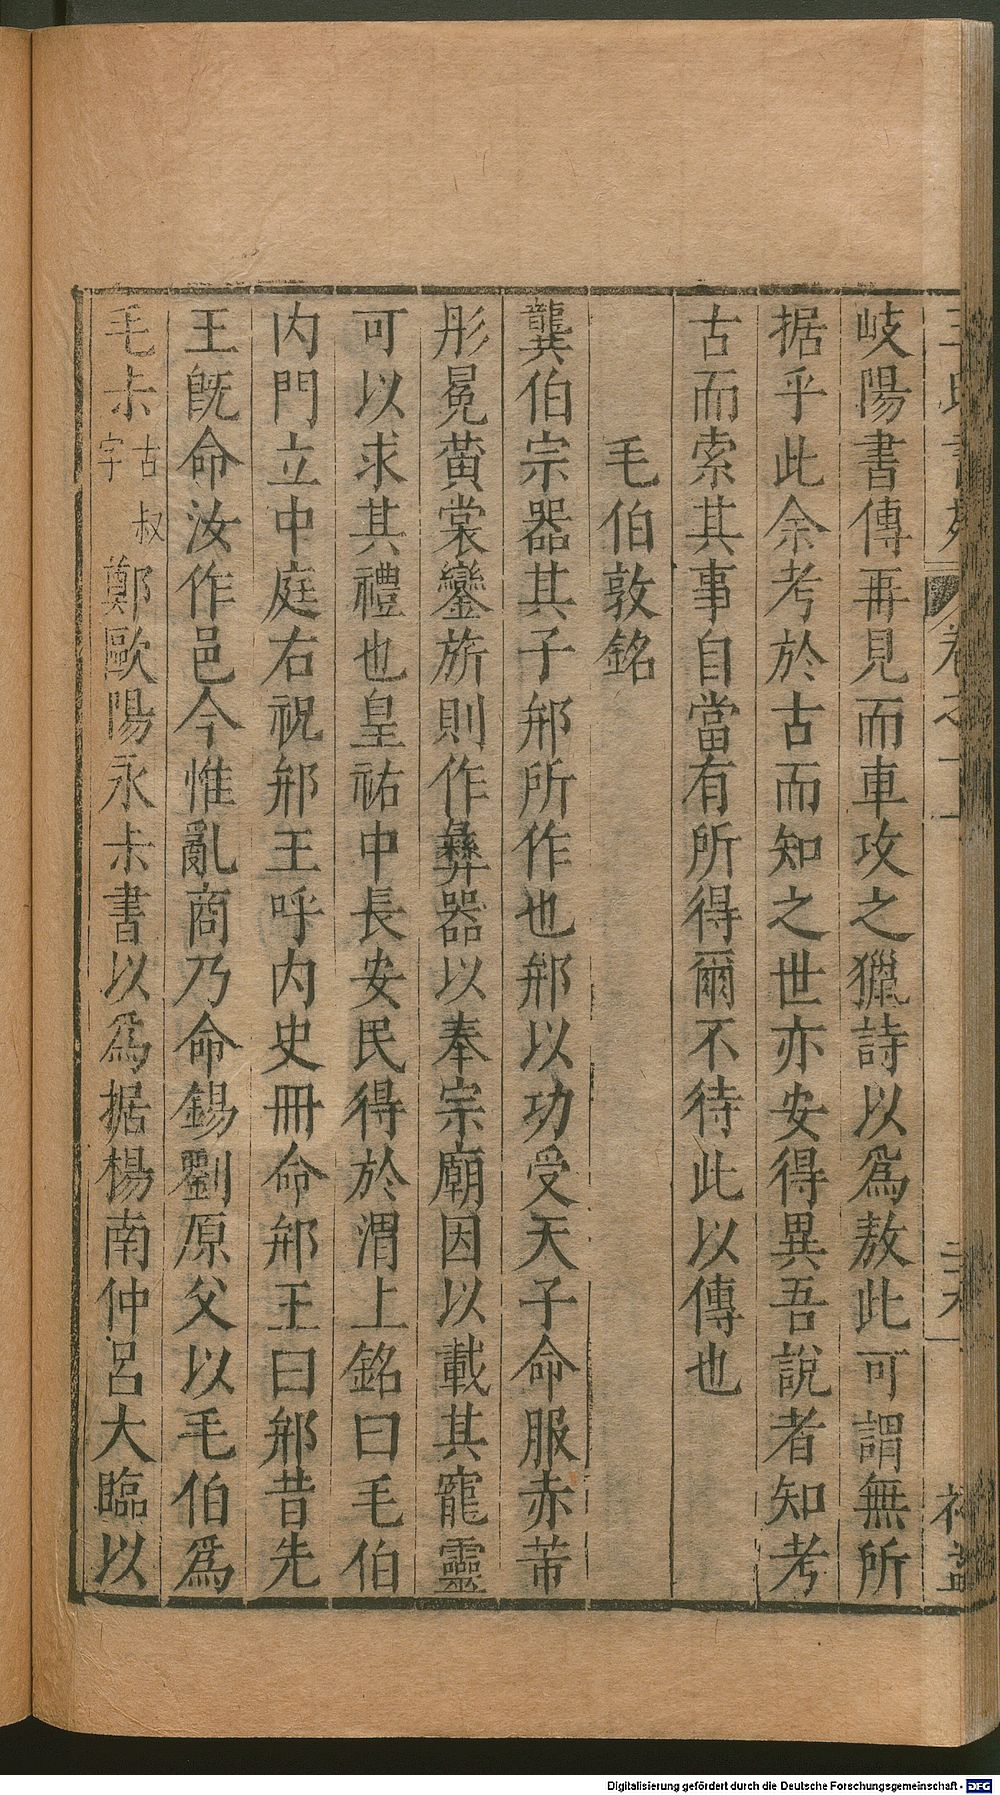 岐陽書傳再見而車攻之獵詩以爲敖此可謂無所
据乎此余考於古而知之世亦安得異吾說者知考
古而索其事自當有所得爾不待此以傳也
毛伯敦銘
龔伯宗器其子䢼所作也䢼以功受天子命服赤芾
彤冕黄裳鑾旂則作彝器以奉宗廟因以載其寵靈
可以求其禮也皇祐中長安民得於渭上銘曰毛伯
内門立中庭右祝䢼王呼内史冊命䢼王曰䢼昔先
王旣命汝作邑今惟亂商乃命錫劉原父以毛伯爲
毛尗古叔字鄭歐陽永尗書以爲据楊南仲呂大臨以
Digitalisierung gefördert durch die Deutsche Forschungsgemeinschaft - DFG